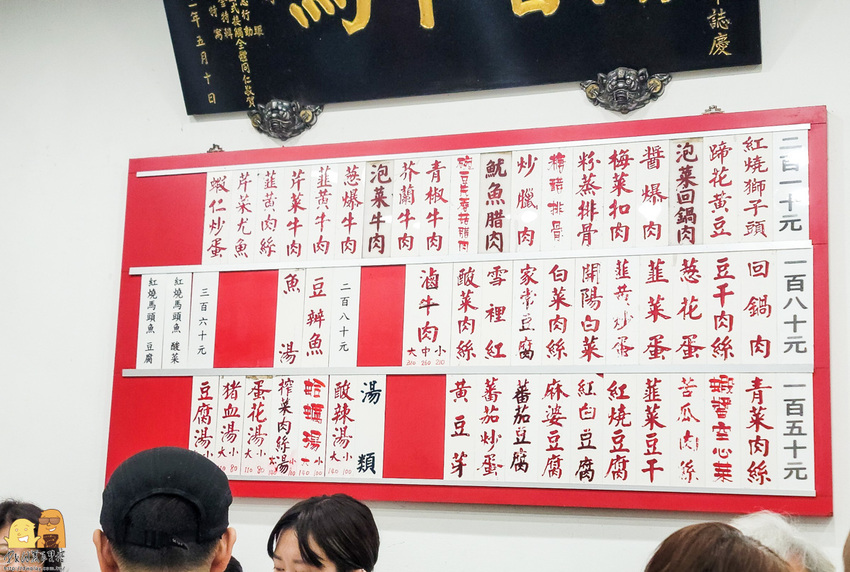 誌慶
年五月十日
二百一十元
紅燒獅子頭
蹄花黃豆
泡菜回鍋肉
醬爆肉
梅菜扣肉
粉蒸排骨
糖醋排骨
炒臘肉
魷魚腊肉
青椒牛肉
芥蘭牛肉
泡菜牛肉
葱爆牛肉
韮黃牛肉
芹菜牛肉
韮黃肉絲
芹菜尤魚
蝦仁炒蛋
一百八十元
回鍋肉
豆干肉絲
葱花蛋
韮菜蛋
韮黃炒蛋
開陽白菜
白菜肉絲
家常豆腐
雪裡紅
酸菜肉絲
滷牛肉
大中小
二百八十元
豆瓣魚
魚湯
三百六十元
紅燒馬頭魚 酸菜
紅燒馬頭魚 豆腐
一百五十元
青菜肉絲
蝦醬空心菜
苦瓜肉絲
韮菜豆干
紅燒豆腐
紅白豆腐
麻婆豆腐
蕃茄豆腐
蕃茄炒蛋
黃豆芽
湯類
酸辣湯
蛤蠣湯
榨菜肉絲湯
蛋花湯
豬血湯
豆腐湯